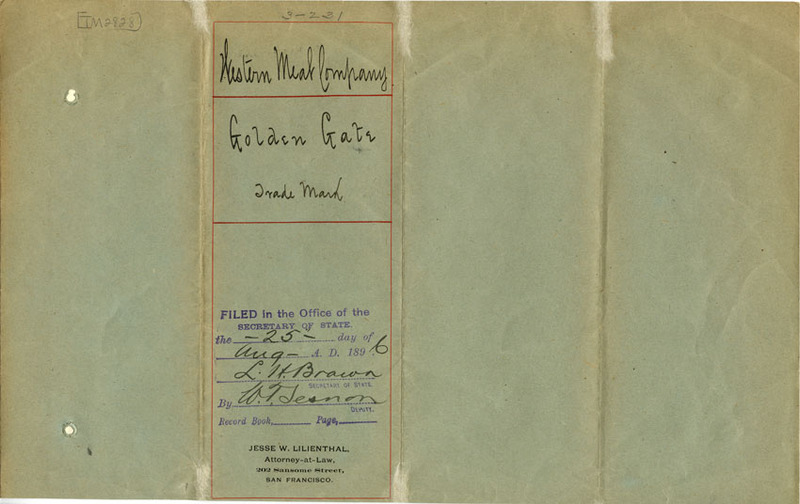 TM2828
3-231
Western Meat Company
Golden Gate
Trade Mark
FILED in the Office of the
SECRETARY OF STATE.
the -25- day of
Aug- A. D. 1896
L. H. Brown
SECRETARY OF STATE.
By W. T. Sesnon
DEPUTY.
Record Book, Page,
JESSE W. LILIENTHAL,
Attorney-at-Law,
202 Sansome Street,
SAN FRANCISCO.